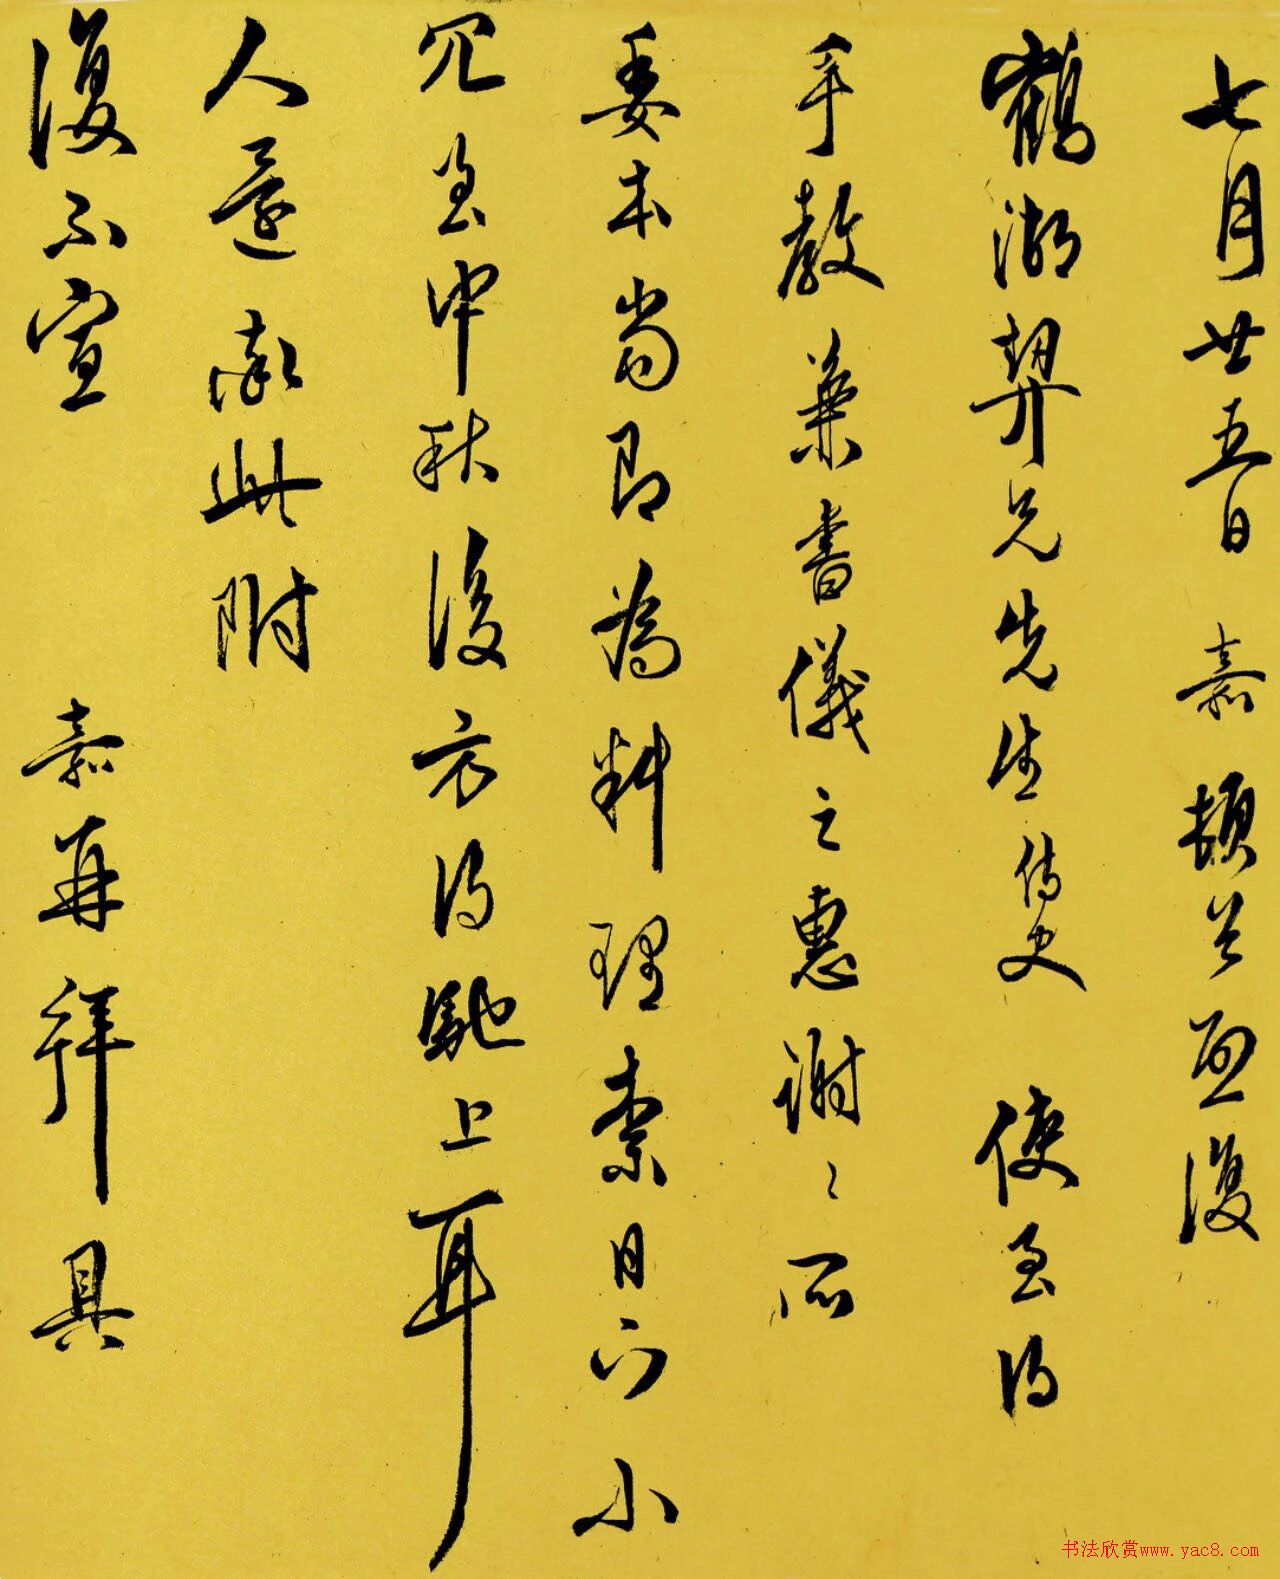 七月廿五日嘉頓首再復
鶴湖契兄先生侍史使至得
手教兼書儀之惠謝〻所
委本當即為料理案日下小
冗至中秋後方得馳上耳
人還附此附
復不宣嘉再拜具
书法欣赏www.yac8.com